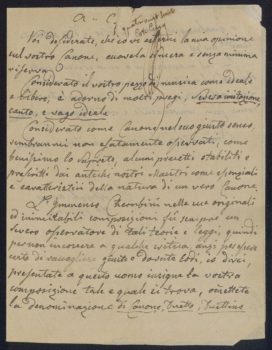 Voi desiderate, ch'io vi esterni la mia opinione
sul vostro Canone, eccovela sincera e senza minima
riserva.
Considerato il vostro pezzo di musica come ideale
e libero, è adorno di molti pregi,
canto, e vago ideale
Considerato come Canone nel suo giusto senso
sembrami non esattamente osservati, come
alcuni precetti stabiliti e
prescritti dai antichi nostri Maestri come essenziali
e caratteristici della natura di un vero Canone.
L'immenso Cherubini nelle sue originali
ed inimitabili composizioni fu sempre un
severo osservatore di tali teorie e leggi, quindi
per non incorrere a qualche critica, anzi per essere
certo di raccogliere giuste e dovute lodi, io direi,
presentate a questo uomo insigne la vostra
composizione tale e quale si trova, omettete
la denominazione di Canone,